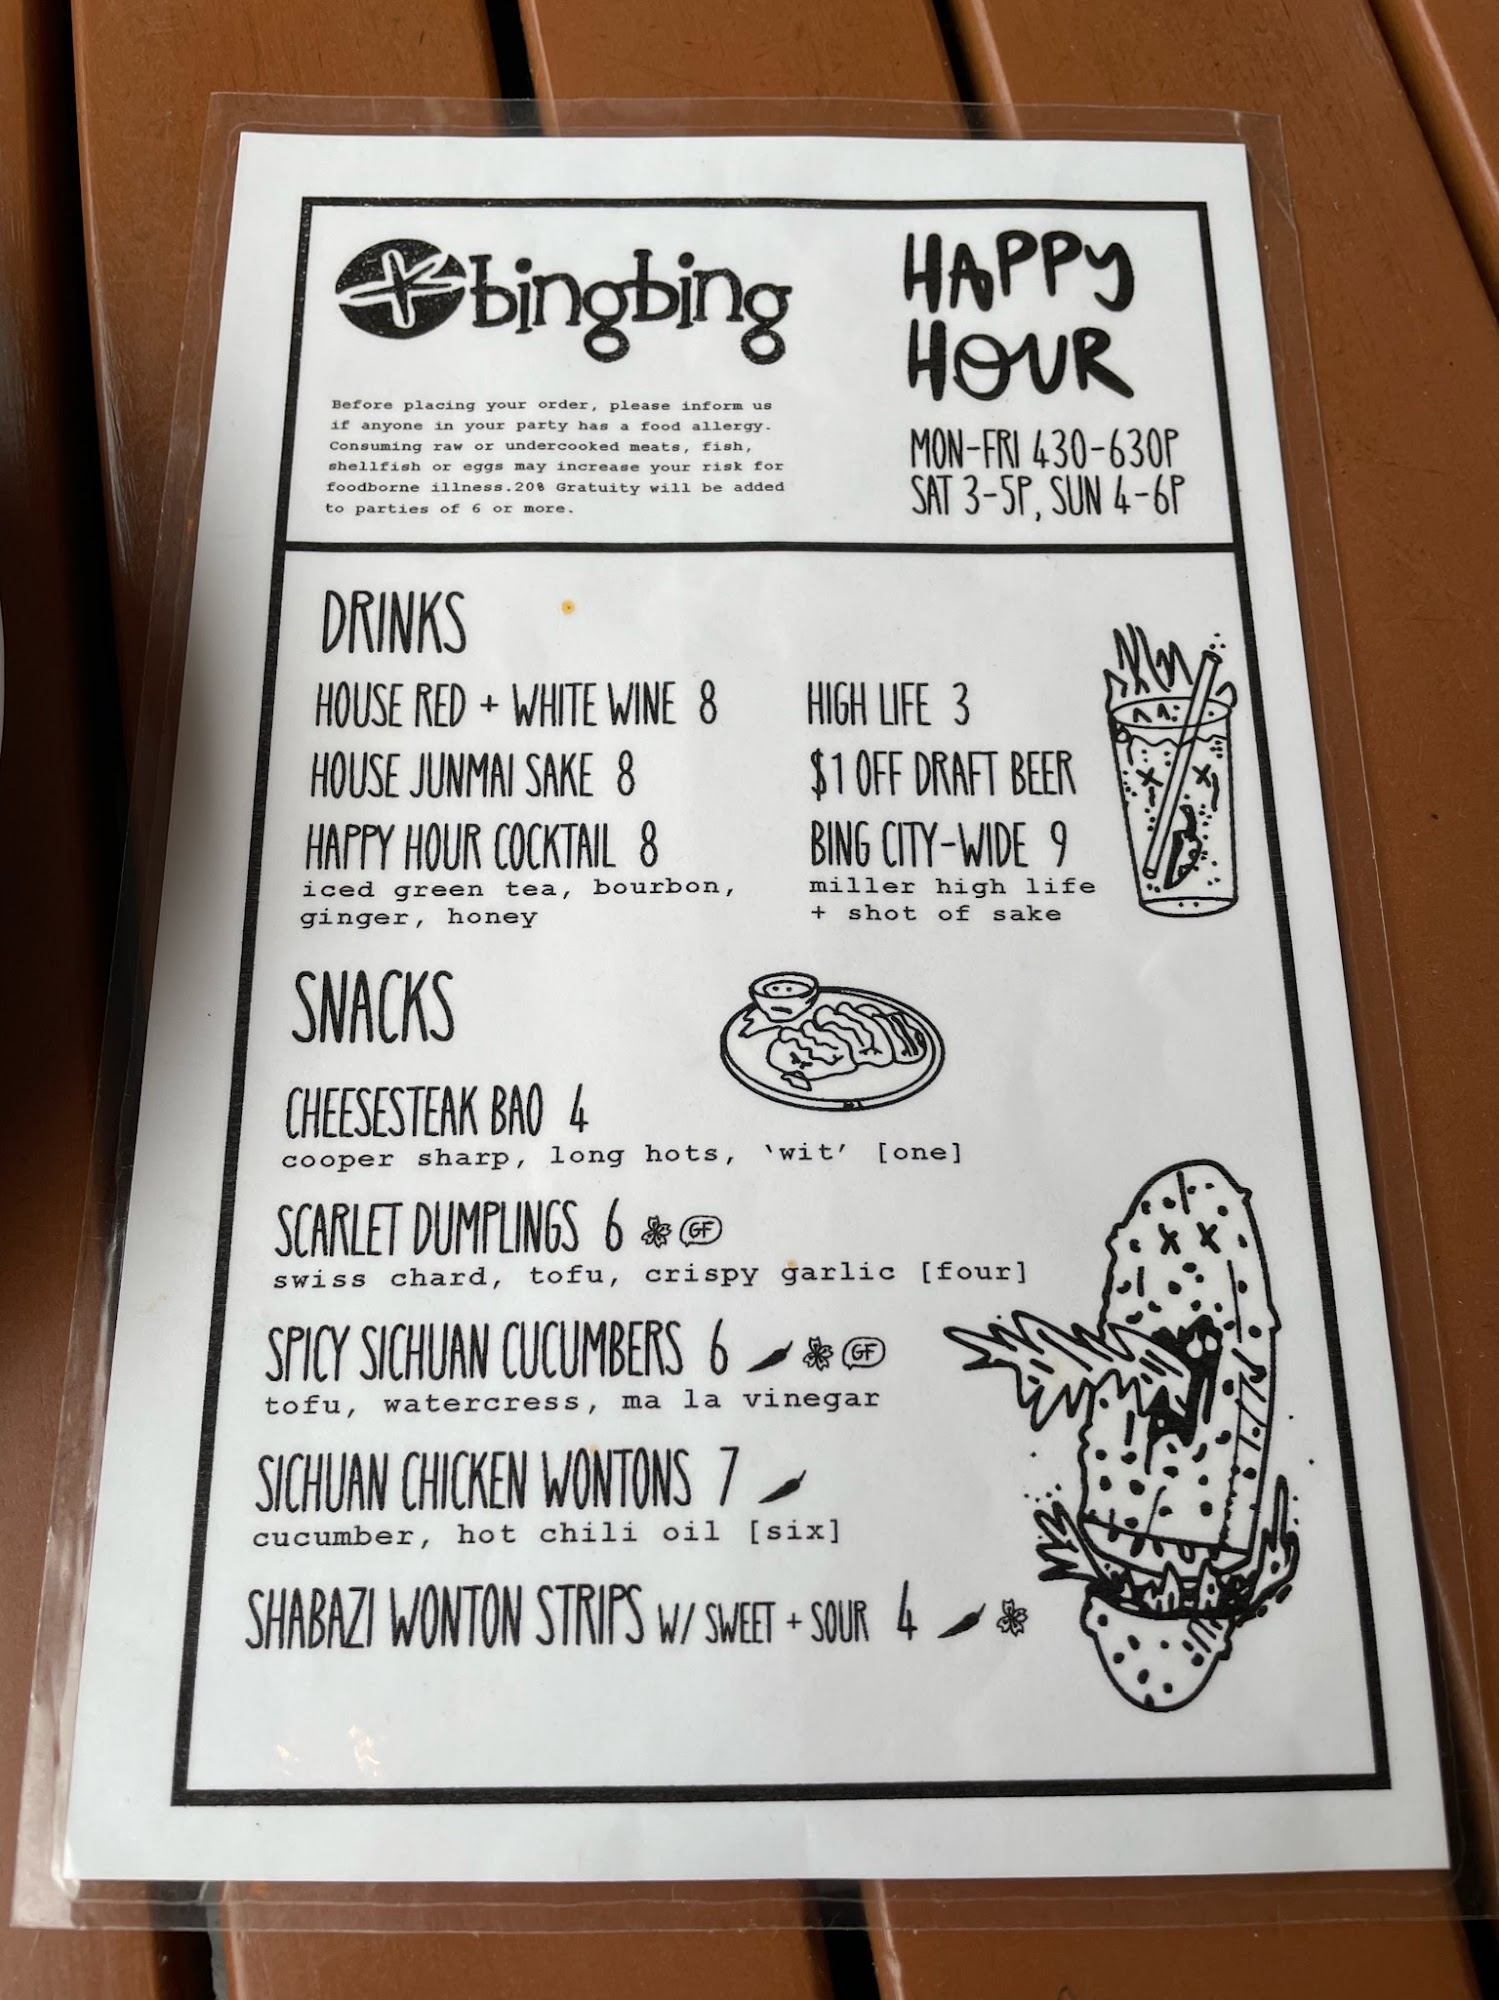 bingbing
HAPPY
HOUR
Before placing your order, please inform us
if anyone in your party has a food allergy.
Consuming raw or undercooked meats, fish,
shellfish or eggs may increase your risk for
foodborne illness.20% Gratuity will be added
to parties of 6 or more.
MON-FRI 430-630P
SAT 3-5P, SUN 4-6P
DRINKS
HOUSE RED + WHITE WINE 8
HOUSE JUNMAI SAKE 8
HAPPY HOUR COCKTAIL 8
iced green tea, bourbon,
ginger, honey
HIGH LIFE 3
$1 OFF DRAFT BEER
BING CITY-WIDE 9
miller high life
+ shot of sake
SNACKS
CHEESESTEAK BAO 4
cooper sharp, long hots, ‘wit’ [one]
SCARLET DUMPLINGS 6 GF
swiss chard, tofu, crispy garlic [four]
SPICY SICHUAN CUCUMBERS 6 GF
tofu, watercress, ma la vinegar
SICHUAN CHICKEN WONTONS 7
cucumber, hot chili oil [six]
SHABAZI WONTON STRIPS W/ SWEET + SOUR 4